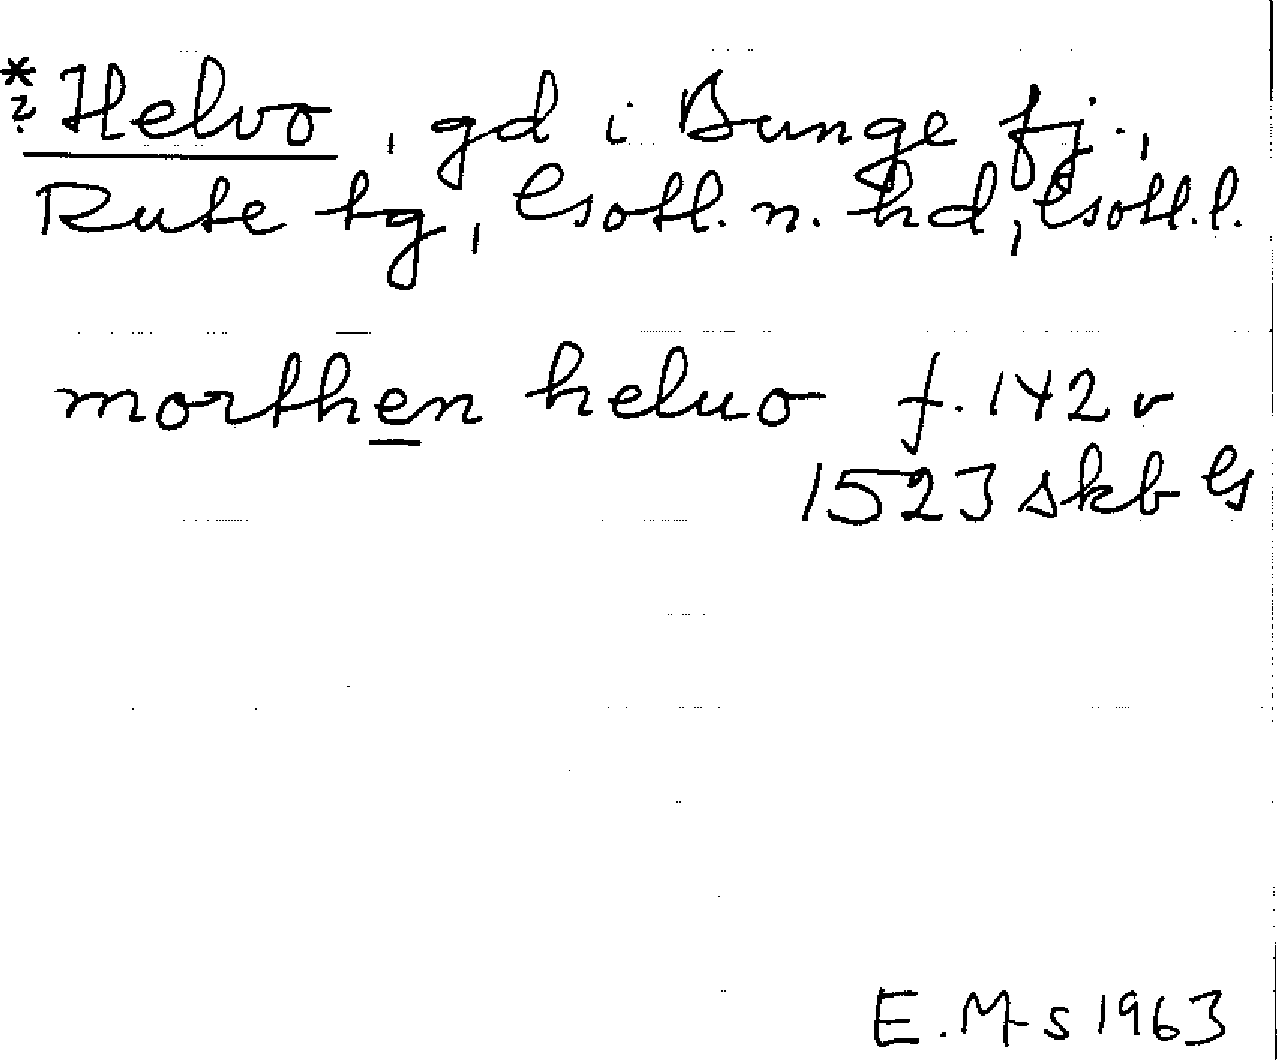 *
? Helvo, gd i Bunge fj.,
Rute tg, Gotl. n. hd, Gotl. l.
morthen heluo f. 142 v
1523 skb G
E. M-s 1963